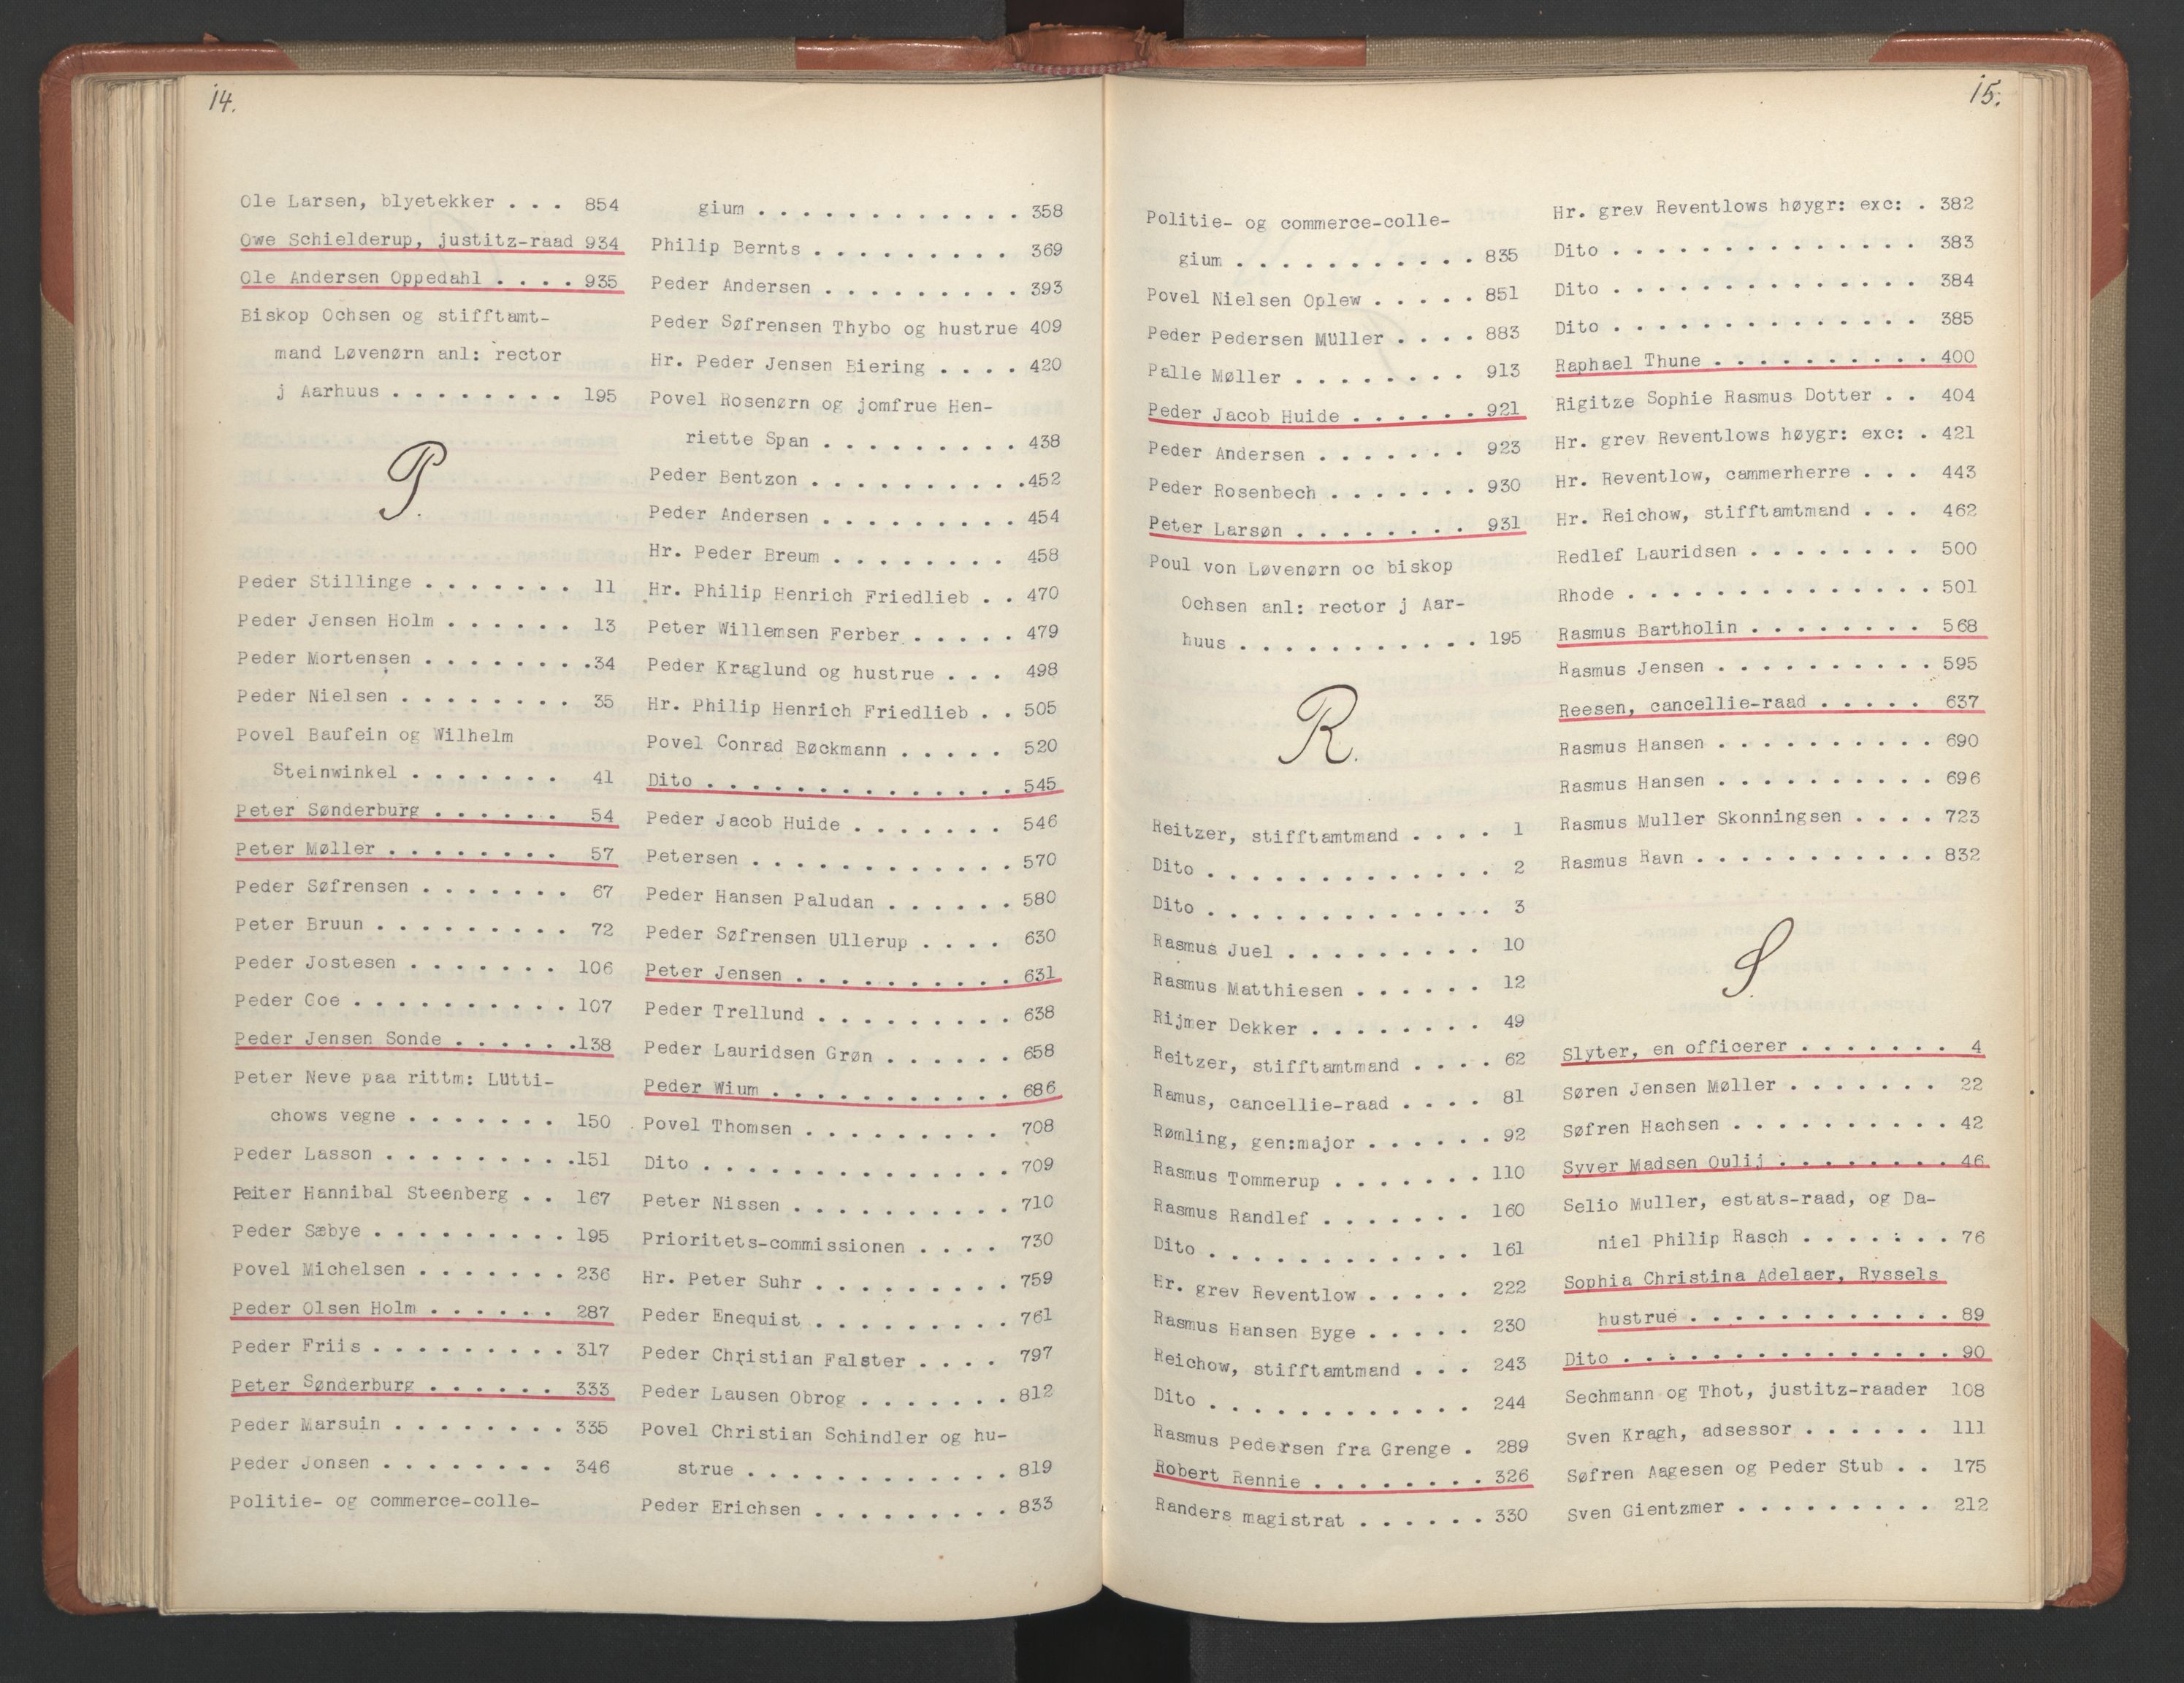 14.
Ole Larsen, blyetekker . . . 854
Owe Schielderup, justitz-raad 934
Ole Andersen Oppedahl . . . . 935
Biskop Ochsen og stifftamt-
mand Løvenørn anl: rector
j Aarhuus . . . . . . . . 195
P.
Peder Stillinge . . . . . . . 11
Peder Jensen Holm . . . . . . 13
Peder Mortensen . . . . . . . . 34
Peder Nielsen . . . . . . . . 35
Povel Baufein og Wilhelm
Steinwinkel . . . . . . . 41
Peter Sønderburg . . . . . . 54
Peter Møller . . . . . . . . 57
Peder Søfrensen . . . . . . . 67
Peter Bruun . . . . . . . . . 72
Peder Jostesen . . . . . . . 106
Peder Goe . . . . . . . . . . 107
Peder Jensen Sonde . . . . . . 138
Peter Neve paa rittm: Lütti-
chows vegne . . . . . . . 150
Peder Lasson . . . . . . . . . 151
Peiter Hannibal Steenberg . . 167
Peder Sæbye . . . . . . . . . 195
Povel Michelsen . . . . . . . 236
Peder Olsen Holm . . . . . . 287
Peder Friis . . . . . . . . . 317
Peter Sønderburg . . . . . . 333
Peder Marsuin . . . . . . . . 335
Peder Jonsen . . . . . . . . 346
Politie- og commerce-colle-
gium . . . . . . . . . . . . 358
Philip Bernts . . . . . . . . . 369
Peder Andersen . . . . . . . . . 393
Peder Søfrensen Thybo og hustrue 409
Hr. Peder Jensen Biering . . . . 420
Povel Rosenørn og jomfrue Hen-
riette Span . . . . . . . . . 438
Peder Bentzon . . . . . . . . . . 452
Peder Andersen . . . . . . . . . 454
Hr. Peder Breum . . . . . . . . 458
Hr. Philip Henrich Friedlieb . . 470
Peter Willemsen Ferber . . . . . 479
Peder Kraglund og hustrue . . . 498
Hr. Philip Henrich Friedlieb . . 505
Povel Conrad Bøckmann . . . . . 520
Dito . . . . . . . . . . . . . . 545
Peder Jacob Huide . . . . . . . 546
Petersen . . . . . . . . . . . . 570
Peder Hansen Paludan . . . . . . 580
Peder Søfrensen Ullerup . . . . 630
Peter Jensen . . . . . . . . . . 631
Peder Trellund . . . . . . . . . 638
Peder Lauridsen Grøn . . . . . . 658
Peder Wium . . . . . . . . . . . 686
Povel Thomsen . . . . . . . . . 708
Dito . . . . . . . . . . . . . . 709
Peter Nissen . . . . . . . . . . 710
Prioritets-commissionen . . . . 730
Hr. Peter Suhr . . . . . . . . . 759
Peder Enequist . . . . . . . . . 761
Peder Christian Falster . . . . 797
Peder Lausen Obrog . . . . . . . 812
Povel Christian Schindler og hu-
strue . . . . . . . . . . . . 819
Peder Erichsen . . . . . . . . . 833
15.
Politie- og commerce-colle-
gium . . . . . . . . . . . 835
Povel Nielsen Oplew . . . . . 851
Peder Pedersen Müller . . . . 883
Palle Møller . . . . . . . . 913
Peder Jacob Huide . . . . . . 921
Peder Andersen . . . . . . . 923
Peder Rosenbech . . . . . . . 930
Peter Larsøn . . . . . . . . 931
Poul von Løvenørn oc biskop
Ochsen anl: rector j Aar-
huus . . . . . . . . . . . 195
R.
Reitzer, stifftamtmand . . . . 1
Dito . . . . . . . . . . . . . 2
Dito . . . . . . . . . . . . . 3
Rasmus Juel . . . . . . . . . 10
Rasmus Matthiesen . . . . . . 12
Rijmer Dekker . . . . . . . . 49
Reitzer, stifftamtmand . . . . 62
Ramus, cancellie-raad . . . . 81
Rømling, gen:major . . . . . . 92
Rasmus Tommerup . . . . . . . 110
Rasmus Randlef . . . . . . . 160
Dito . . . . . . . . . . . . 161
Hr. grev Reventlow . . . . . 222
Rasmus Hansen Byge . . . . . 230
Reichow, stifftamtmand . . . 243
Dito . . . . . . . . . . . . 244
Rasmus Pedersen fra Grenge . 289
Robert Rennie . . . . . . . . 326
Randers magistrat . . . . . . 330
Hr. grev Reventlows høygr: exc: . 382
Dito . . . . . . . . . . . . . . 383
Dito . . . . . . . . . . . . . . 384
Dito . . . . . . . . . . . . . . 385
Raphael Thune . . . . . . . . . . 400
Rigitze Sophie Rasmus Dotter . . 404
Hr. grev Reventlows høygr: exc: . 421
Hr. Reventlow, cammerherre . . . 443
Hr. Reichow, stifftamtmand . . . 462
Redlef Lauridsen . . . . . . . . 500
Rhode . . . . . . . . . . . . . . 501
Rasmus Bartholin . . . . . . . . 568
Rasmus Jensen . . . . . . . . . . 595
Reesen, cancellie-raad . . . . . 637
Rasmus Hansen . . . . . . . . . . 690
Rasmus Hansen . . . . . . . . . . 696
Rasmus Muller Skonningsen . . . . 723
Rasmus Ravn . . . . . . . . . . . 832
S.
Slyter, en officerer . . . . . . . 4
Søren Jensen Møller . . . . . . . 22
Søfren Hachsen . . . . . . . . . . 42
Syver Madsen Oulij . . . . . . . . 46
Selio Muller, estats-raad, og Da-
niel Philip Rasch . . . . . . . 76
Sophia Christina Adelaer, Ryssels
hustrue . . . . . . . . . . . . 89
Dito . . . . . . . . . . . . . . . 90
Sechmann og Thot, justitz-raader 108
Sven Kragh, adsessor . . . . . . 111
Søfren Aagesen og Peder Stub . . 175
Sven Gientzmer . . . . . . . . . 212